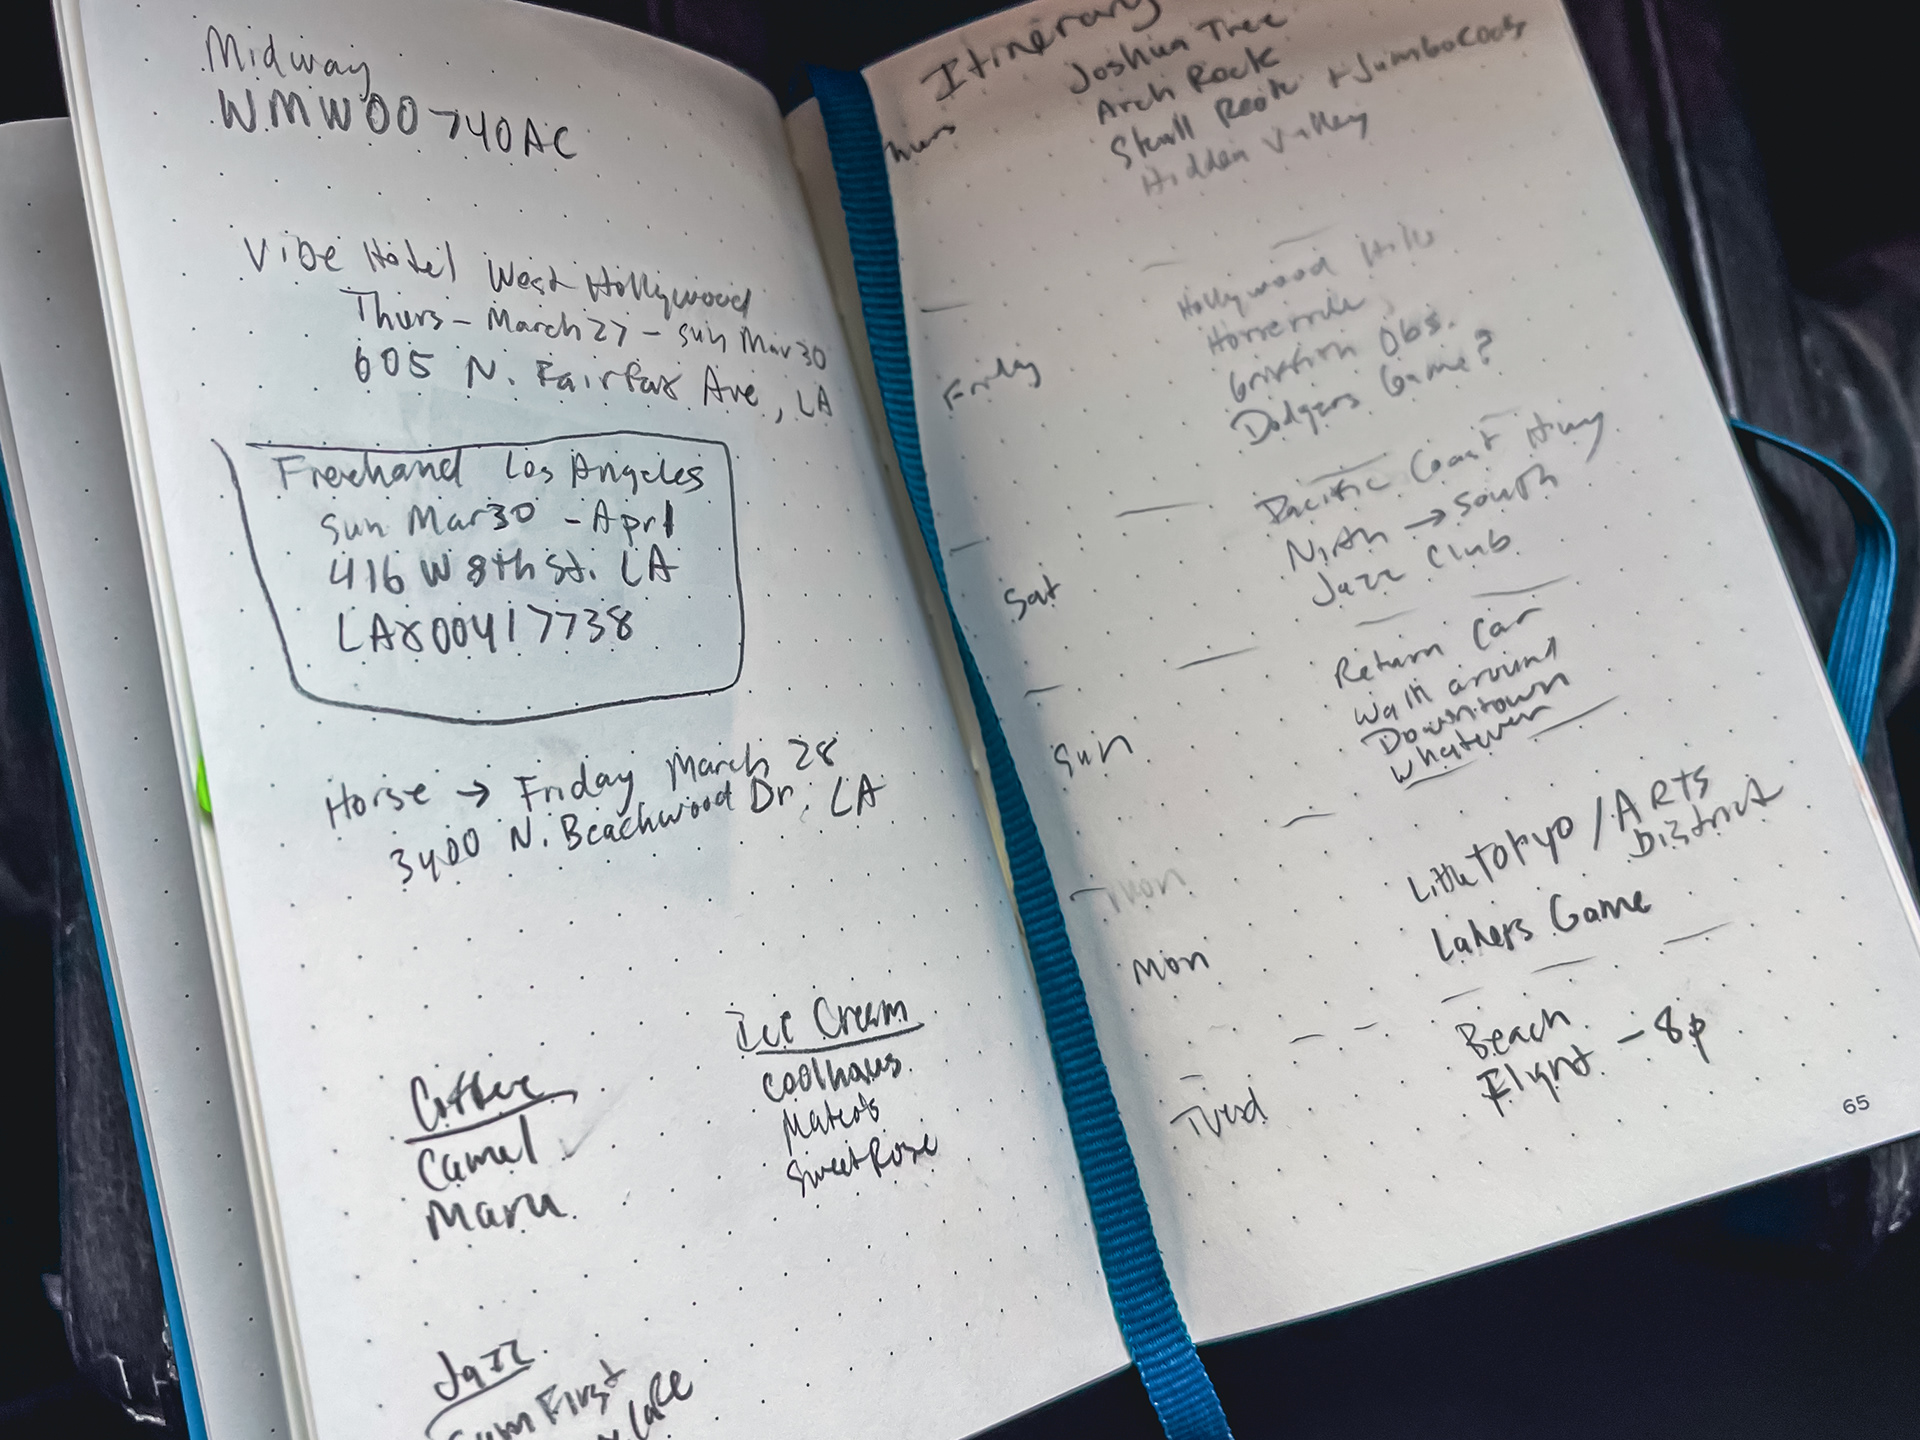 Midway
WMW00740AC
Vibe Hotel West Hollywood
Thurs - March 27 - Sun Mar 30
605 N. Fairfax Ave, LA
Freehand Los Angeles
Sun Mar 30 - Apr 1
416 W 8th St. LA
LAX00417738
Horse → Friday March 28
3400 N. Beachwood Dr, LA
Coffee
Camel
Maru
Ice Cream
Coolhaus
Sweet Rose
Jazz
First
Itinerary
Thurs
Joshua Tree
Arch Rock
Skull Rock + Jumbo Rocks
Hidden Valley
Friday
Hollywood Hills
Horseride
Griffith Obs.
Dodgers Game?
Sat
Pacific Coast Hwy
North → South
Jazz Club
Sun
Return Car
Walk around
Downtown
whatever
Mon
Mon
Little Tokyo / ARTS
District
Lakers Game
Tuesd
Beach
Flight - 8p
65